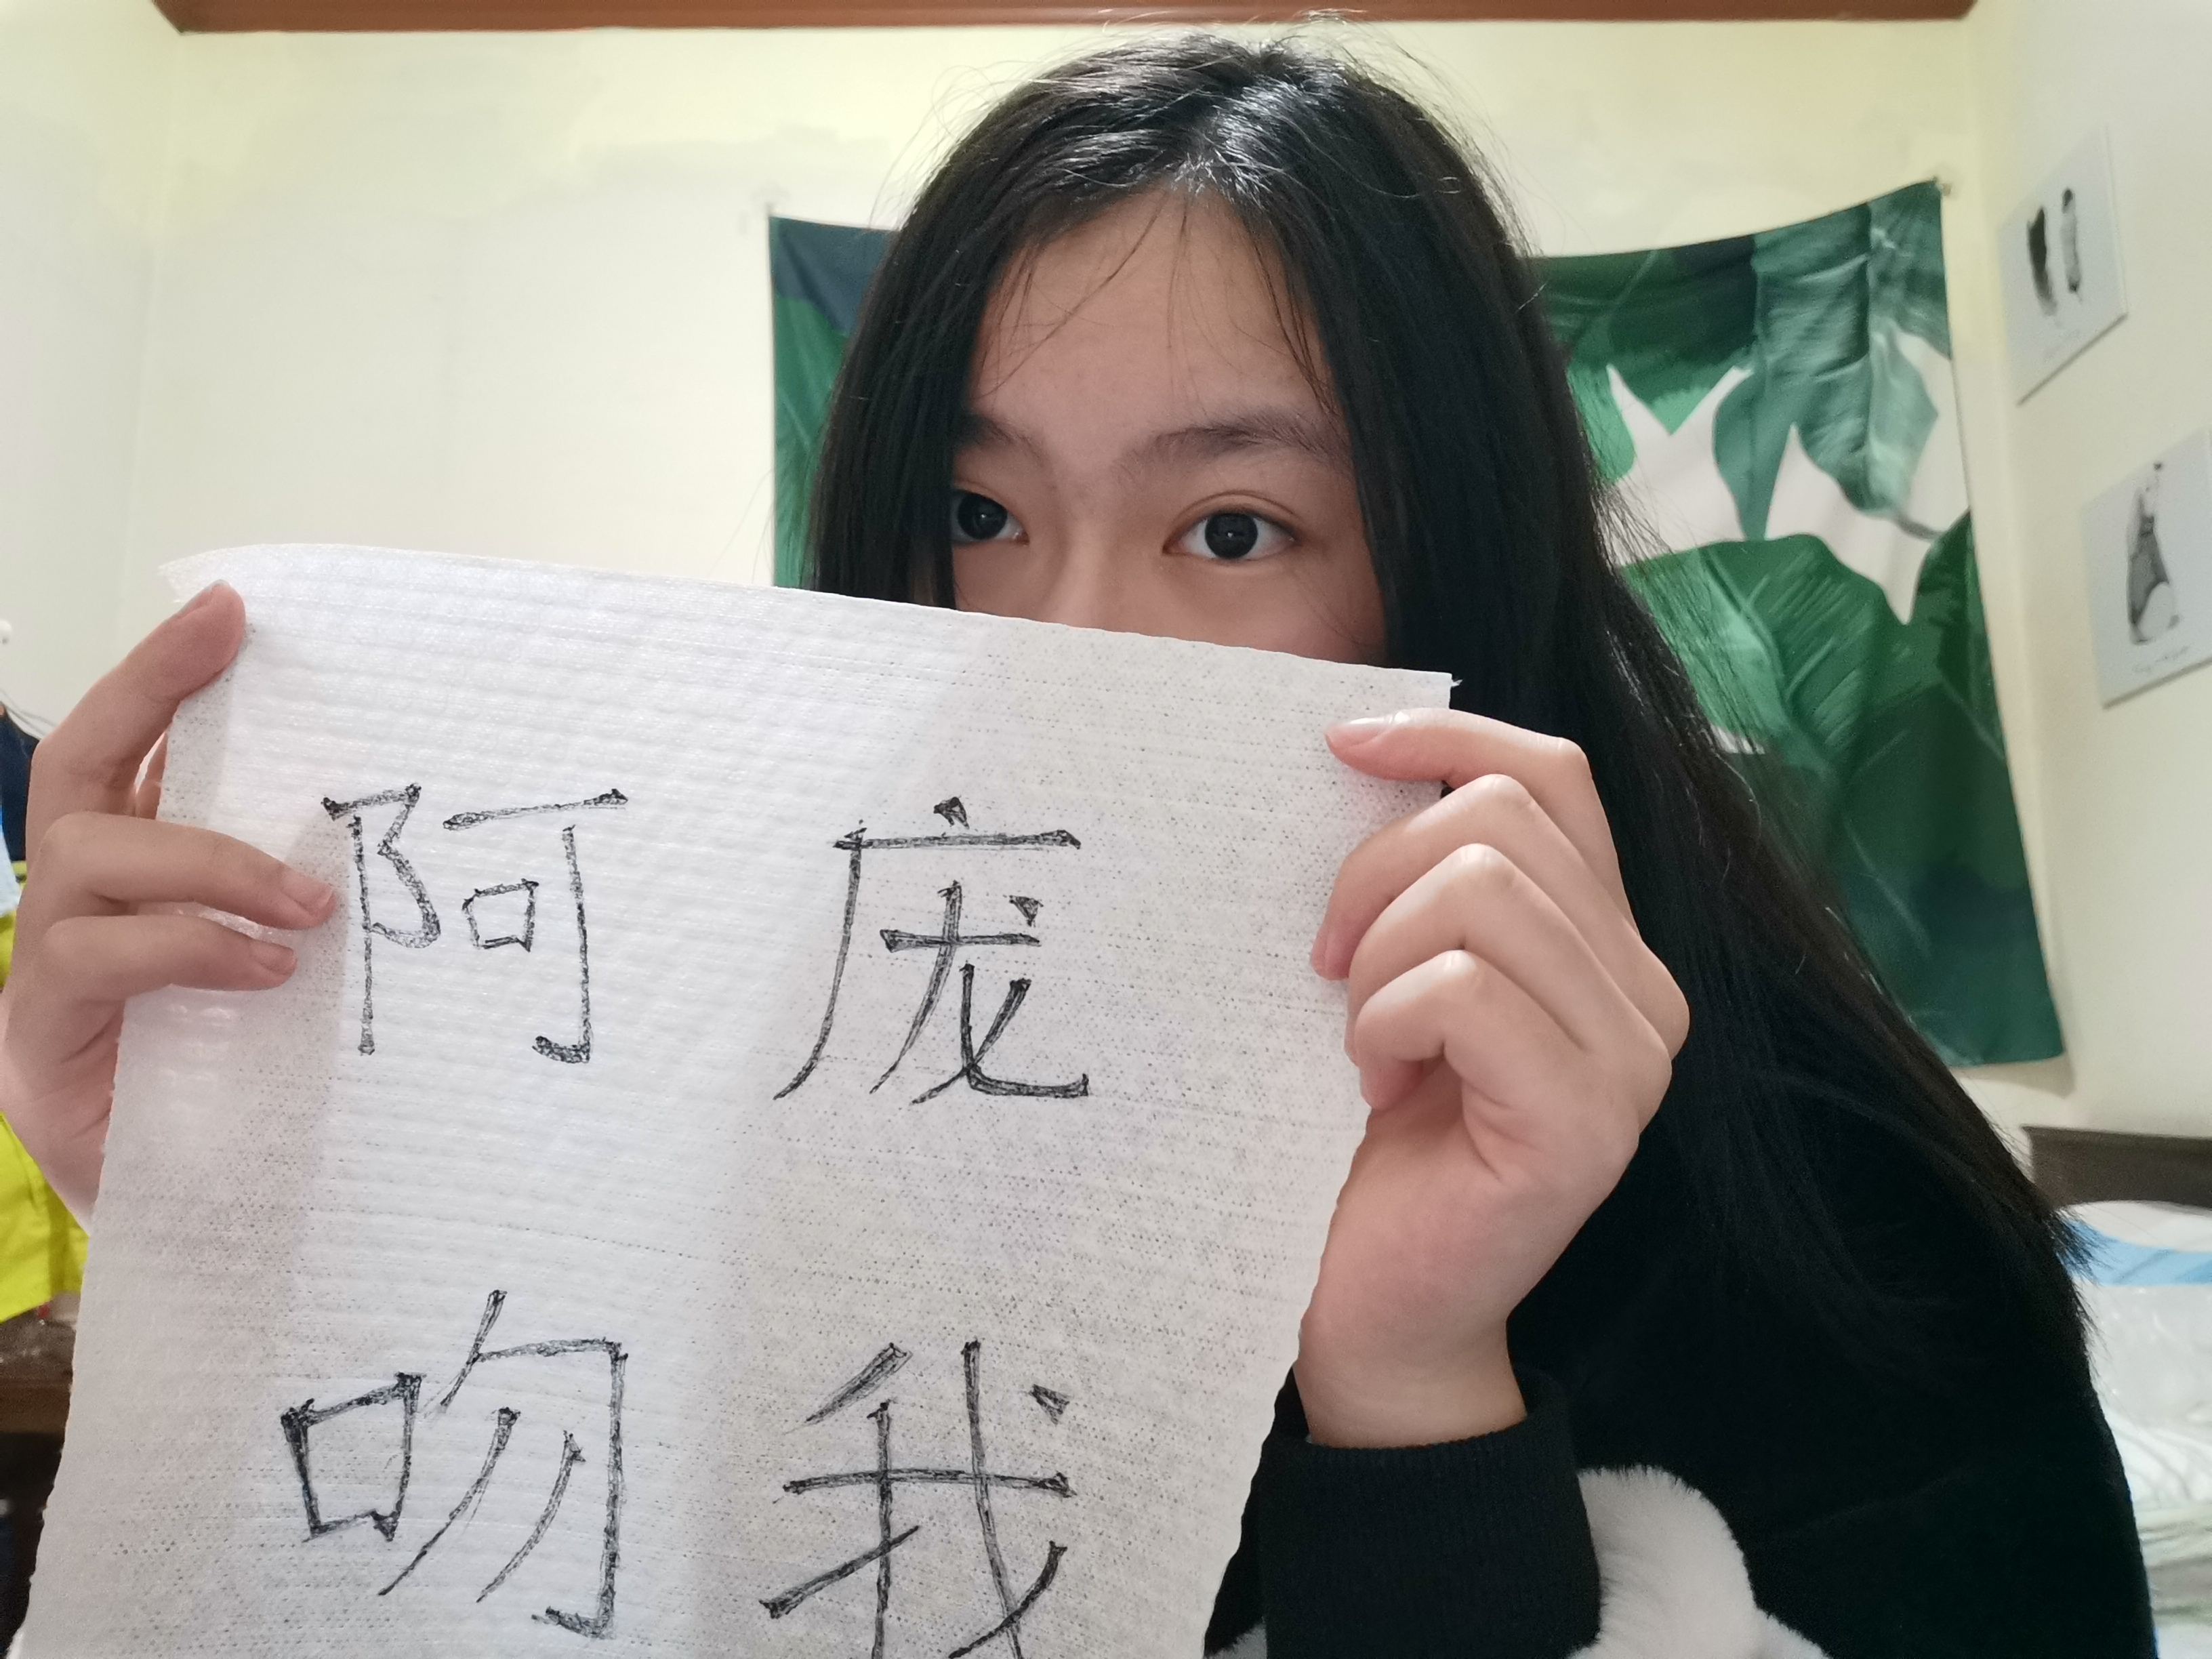 阿庞
吻我